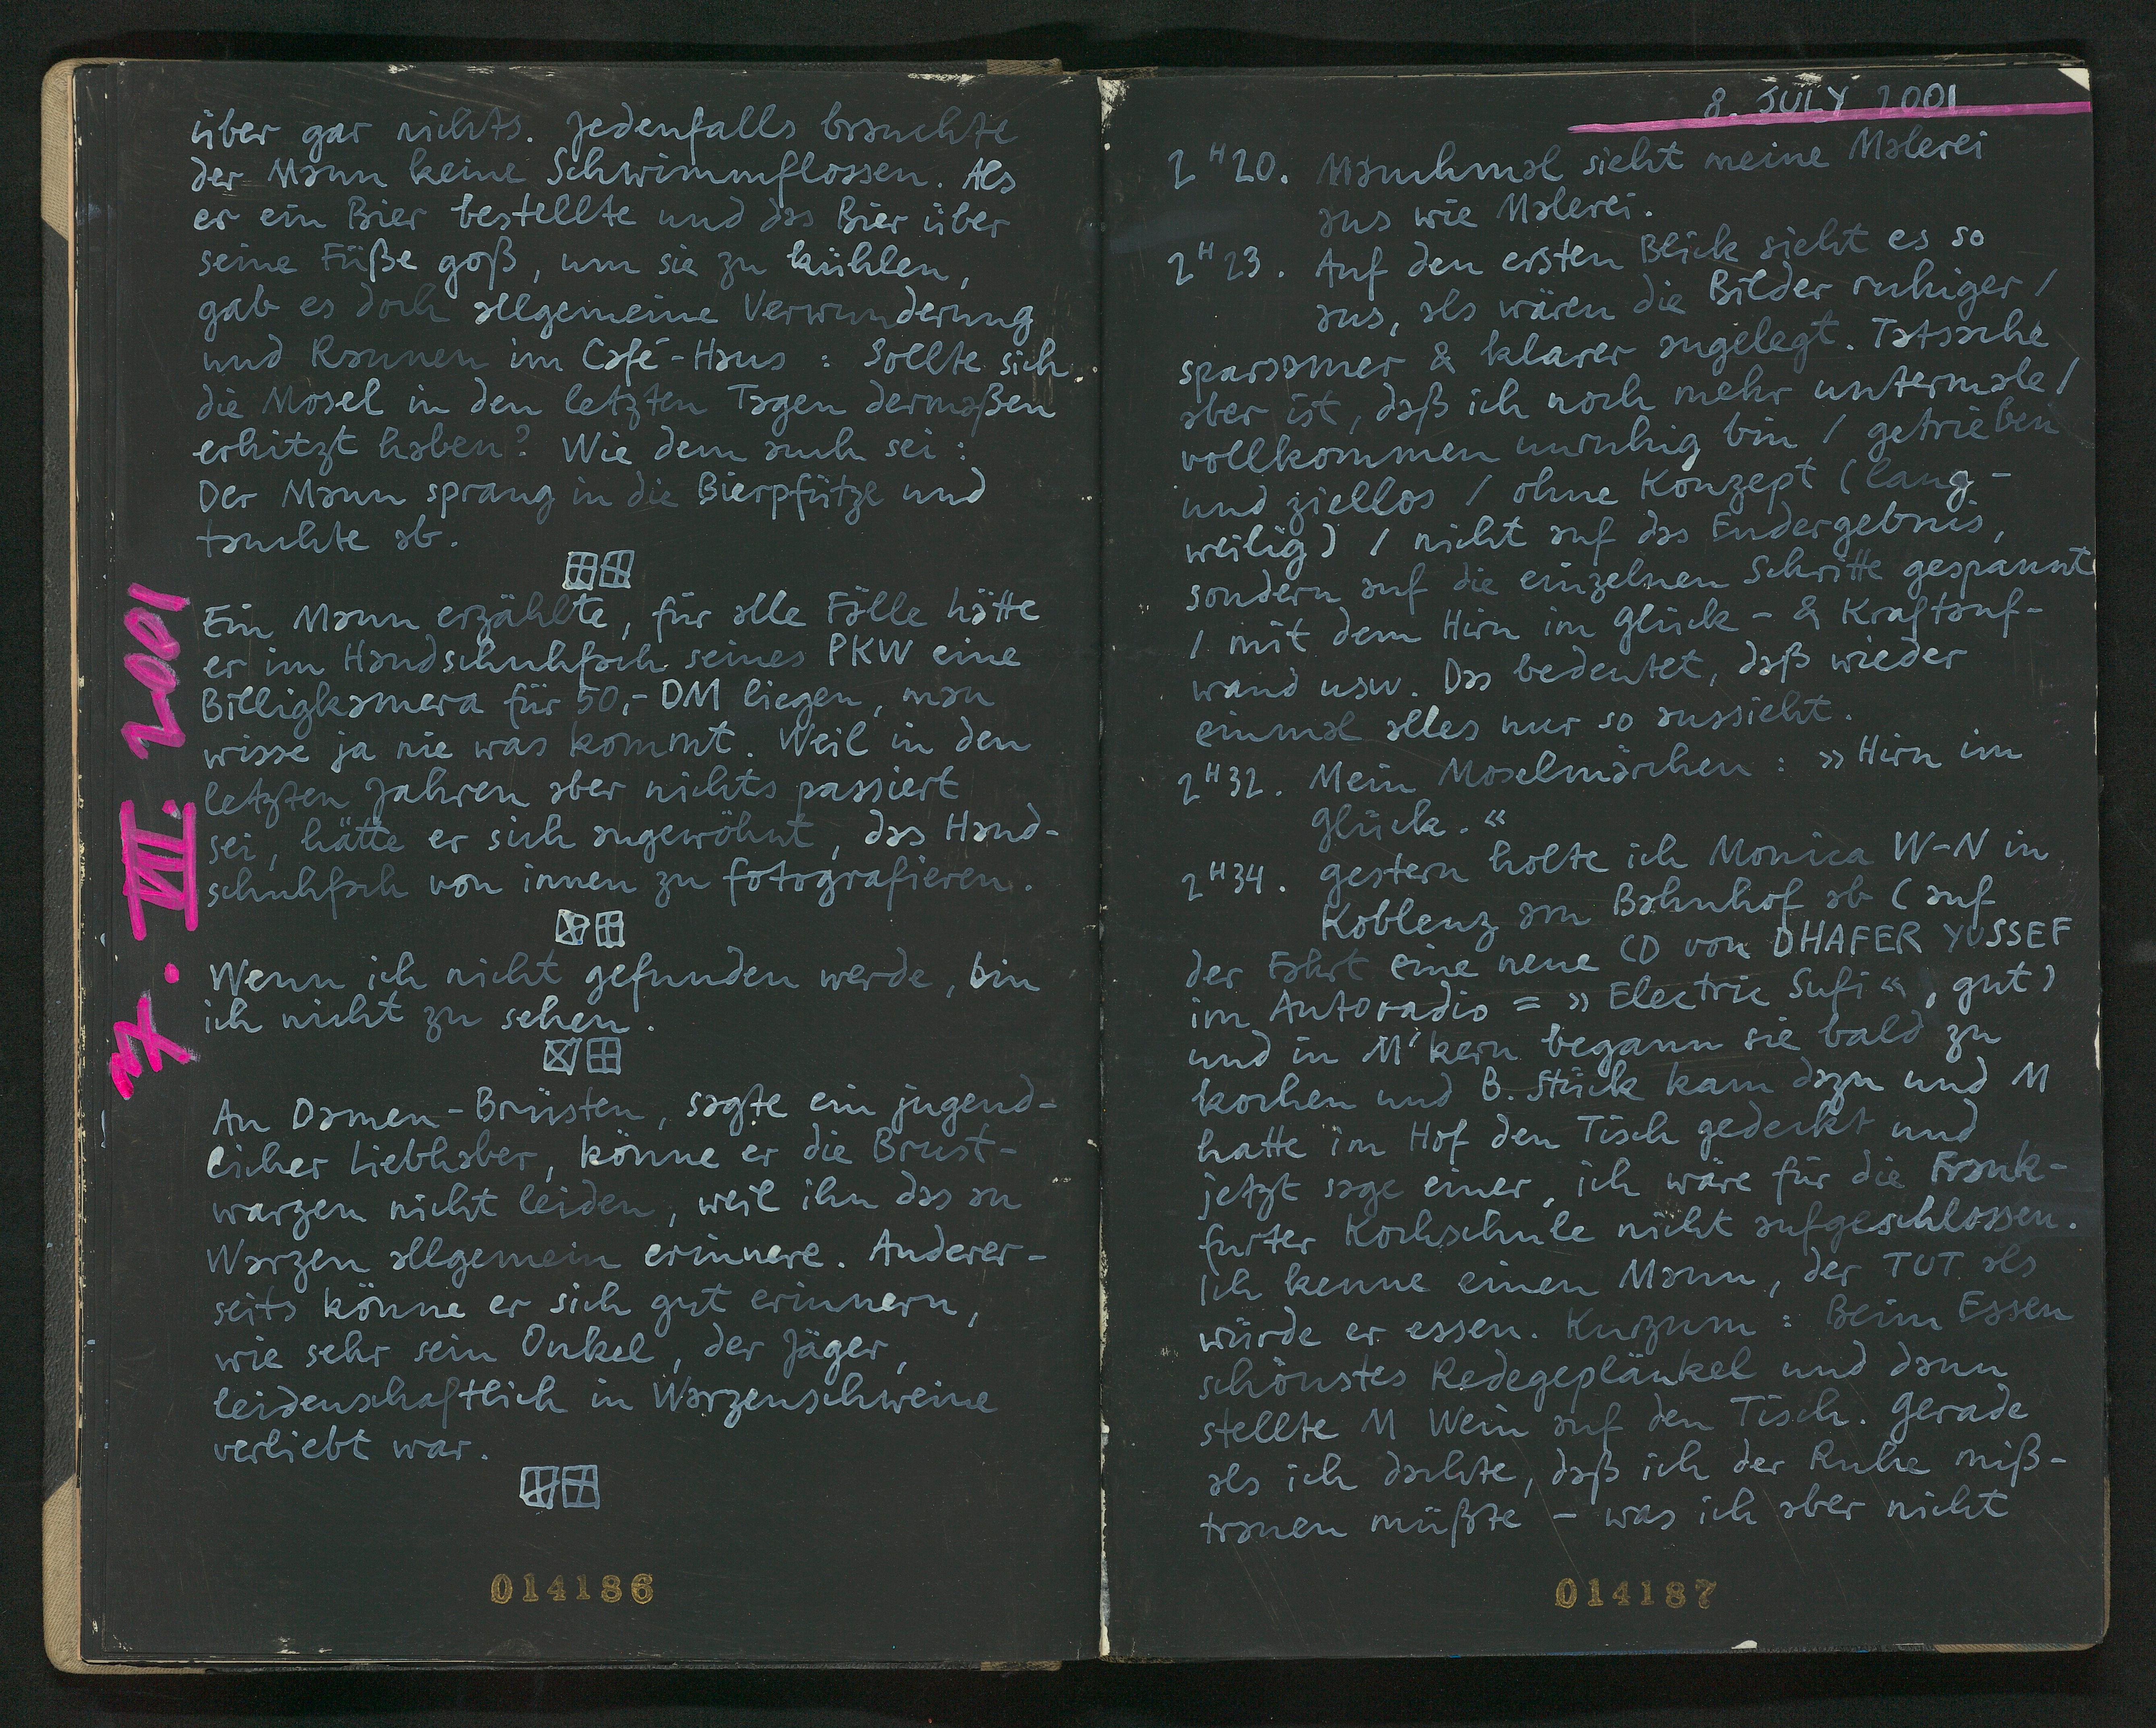 über gar nichts. Jedenfalls brauchte
der Mann keine Schwimmflossen. Als
er ein Bier bestellte und das Bier über
seine Füße goß, um sie zu kühlen,
gab es doch allgemeine Verwunderung
und Raunen im Café-Haus : Sollte sich
die Mosel in den letzten Tagen dermaßen
erhitzt haben? Wie dem auch sei :
Der Mann sprang in die Bierpfütze und
tauchte ab.
Ein Mann erzählte, für alle Fälle hätte
er im Handschuhfach seines PKW eine
Billigkamera für 50,- DM liegen, man
wisse ja nie was kommt. Weil in den
letzten Jahren aber nichts passiert
sei, hätte er sich angewöhnt, das Hand-
schuhfach von innen zu fotografieren.
Wenn ich nicht gefunden werde, bin
ich nicht zu sehen.
An Damen-Brüsten, sagte ein jugend-
licher Liebhaber, könne er die Brust-
warzen nicht leiden, weil ihn das an
Warzen allgemein erinnere. Anderer-
seits könne er sich gut erinnern,
wie sehr sein Onkel, der Jäger,
leidenschaftlich in Warzenschweine
verliebt war.
7. VII. 2001
014186
8. JULY 2001
2 H 20. Manchmal sieht meine Malerei
aus wie Malerei.
2 H 23. Auf den ersten Blick sieht es so
aus, als wären die Bilder ruhiger /
sparsamer & klarer angelegt. Tatsache
aber ist, daß ich noch mehr untermale /
vollkommen unruhig bin / getrieben
und ziellos / ohne Konzept (lang-
weilig) / nicht auf das Endergebnis,
sondern auf die einzelnen Schritte gespannt
/ mit dem Hirn im Glück- & Kraftauf-
wand usw. Das bedeutet, daß wieder
einmal alles nur so aussieht.
2 H 32. Mein Moselmärchen : »Hirn im
Glück.«
2 H 34. Gestern holte ich Monica W-N in
Koblenz am Bahnhof ab (auf
der Fahrt eine neue CD von DHAFER YUSSEF
im Autoradio = »Electric Sufi«, gut)
und in M'kern begann sie bald zu
kochen und B. Stück kam dazu und M
hatte im Hof den Tisch gedeckt und
jetzt sage einer, ich wäre für die Frank-
furter Kochschule nicht aufgeschlossen.
Ich kenne einen Mann, der TUT als
würde er essen. Kurzum : Beim Essen
schönstes Redegeplänkel und dann
stellte M Wein auf den Tisch. Gerade
als ich dachte, daß ich der Ruhe miß-
trauen müßte – was ich aber nicht
014187